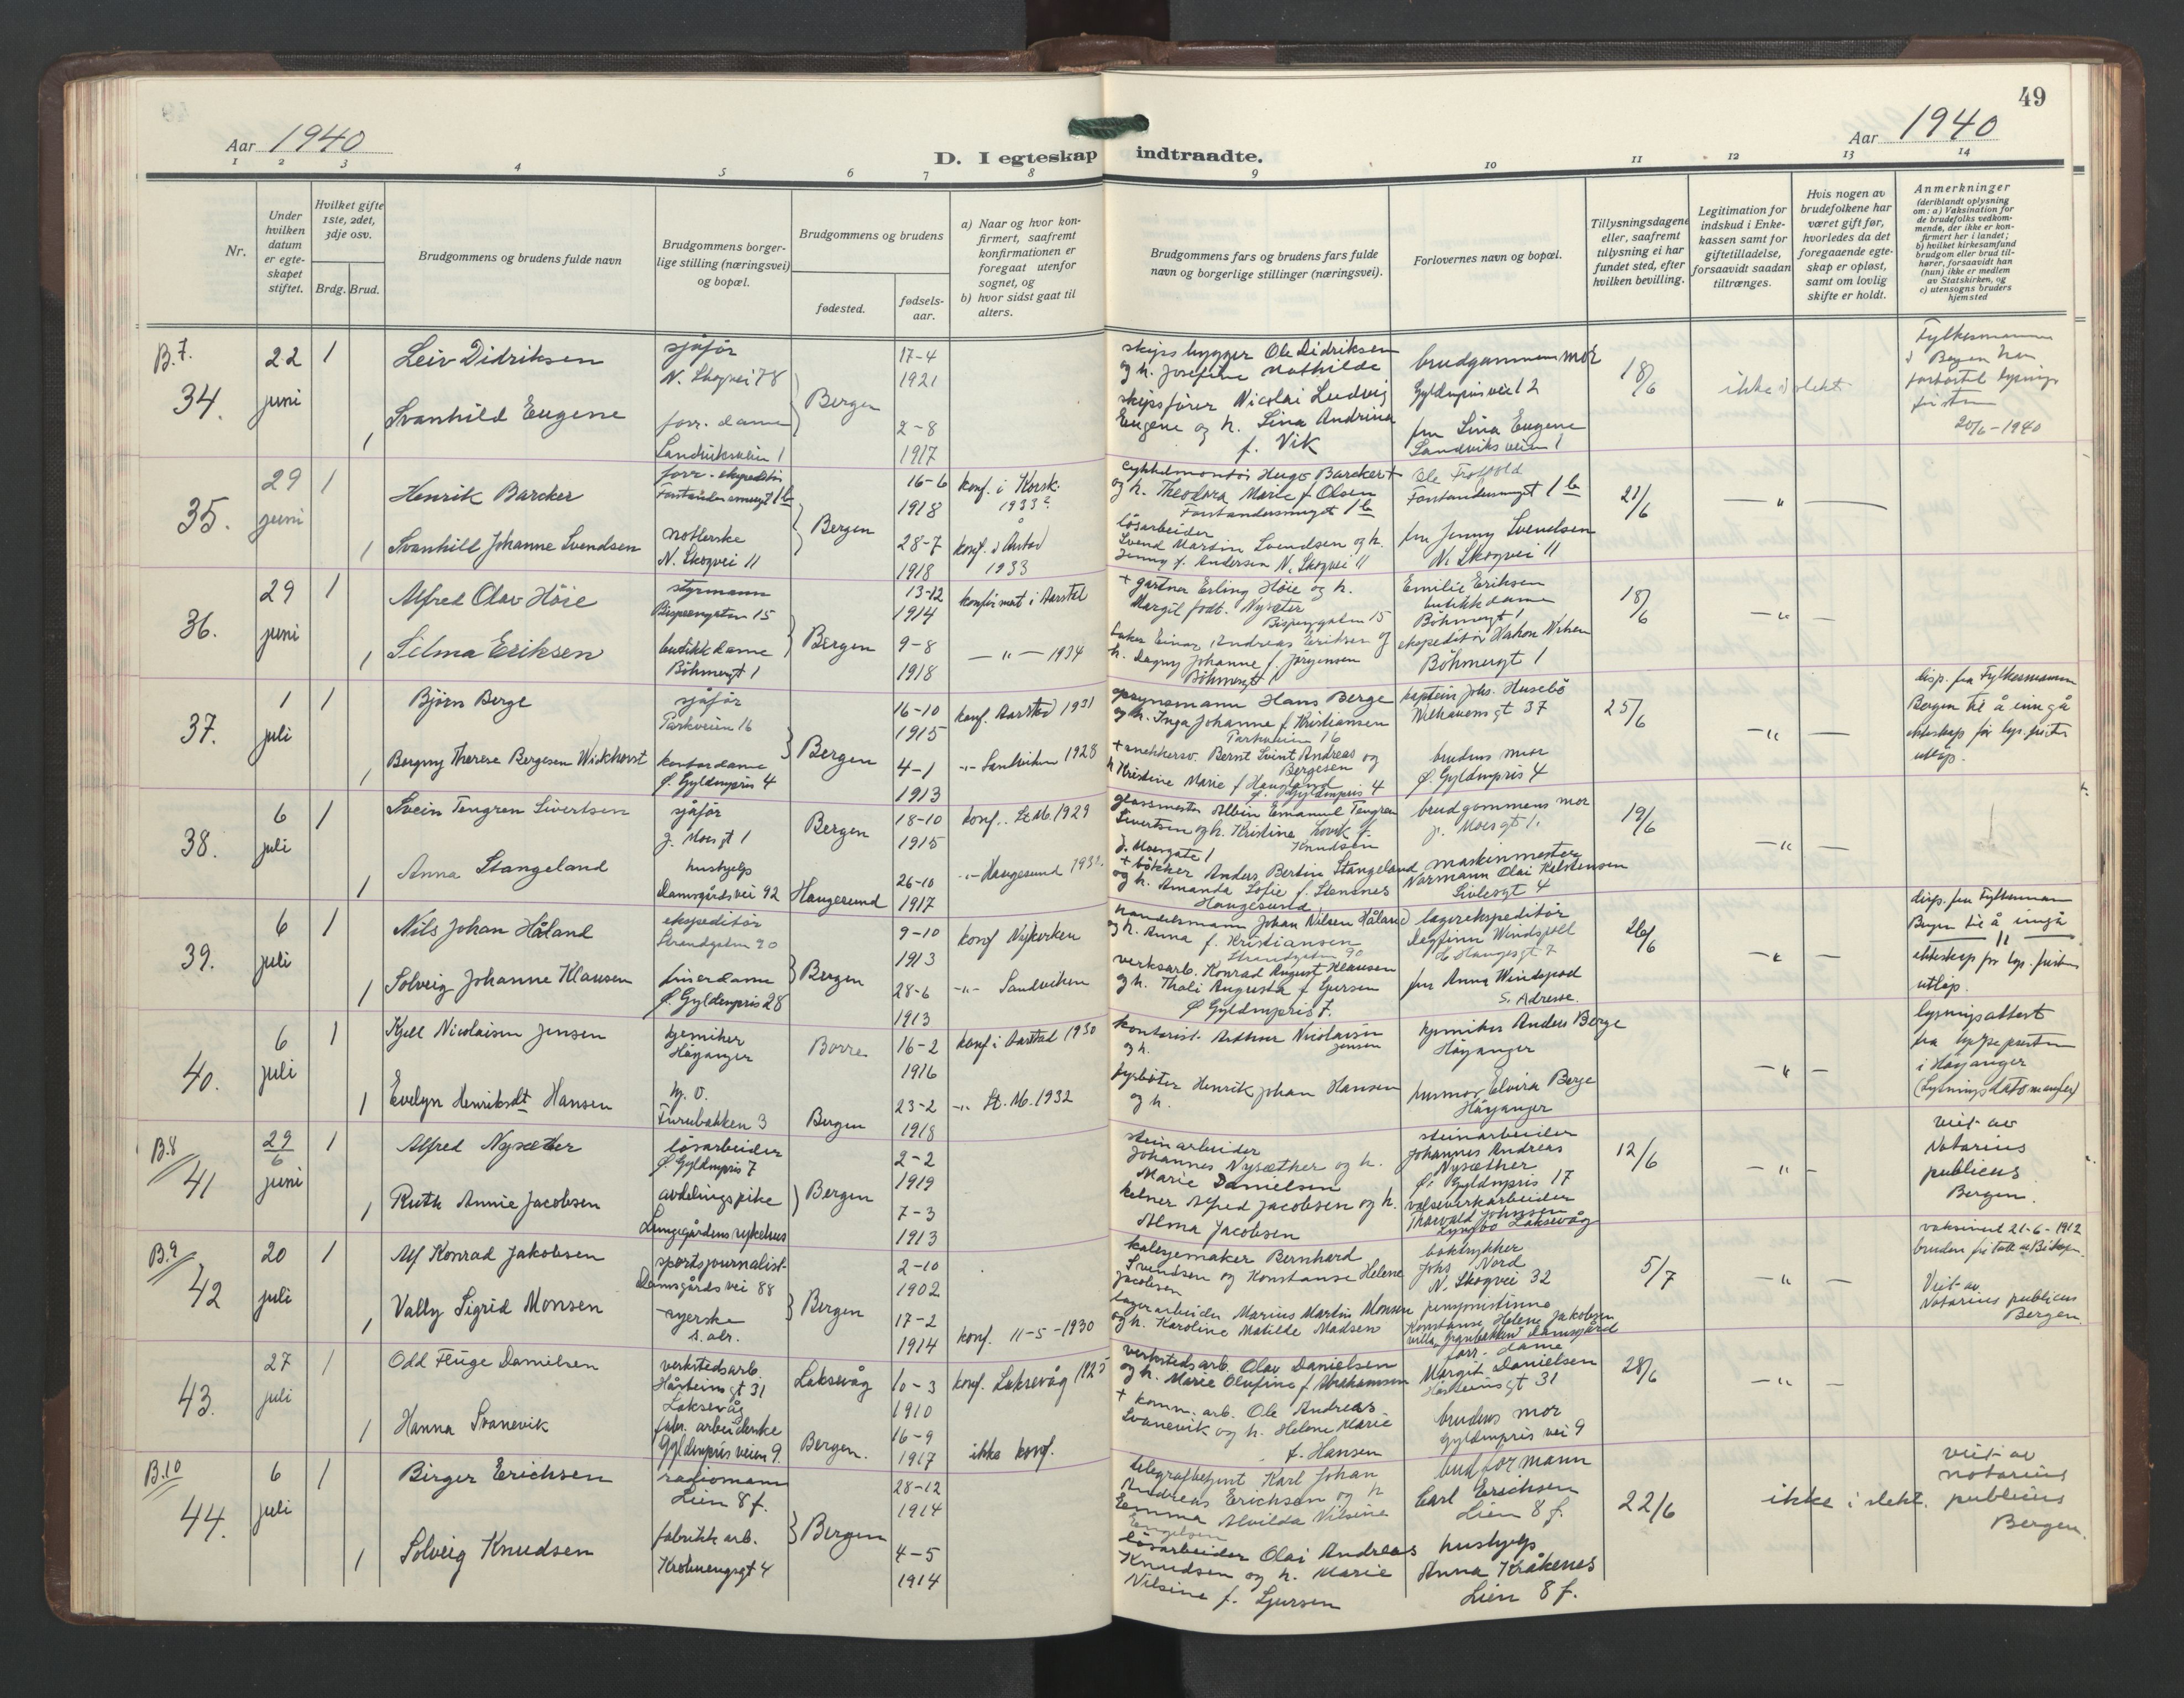 49
Aar 1940
Aar 1940
D. I egteskap indtraadte.
1 2 3 4 5 6 7 8 9 10 11 12 13 14
Nr.
Under hvilken datum er egte-skapet stiftet.
Hvilket gifte 1ste, 2det, 3dje osv.
Brdg. Brud.
Brudgommens og brudens fulde navn
Brudgommens borger-
lige stilling (næringsvei)
og bopæl.
Brudgommens og brudens
fødested.
fødsels-
aar.
a) Naar og hvor kon-
firmert, saafremt
konfirmationen er
foregaat utenfor
sognet, og
b) hvor sidst gaat til
alters.
Brudgommens fars og brudens fars fulde
navn og borgerlige stillinger (næringsvei).
Forlovernes navn og bopæl.
Tillysningsdagene
eller, saafremt
tillysning ei har
fundet sted, efter
hvilken bevilling.
Legitimation for
indskud i Enke-
kassen samt for
giftetilladelse,
forsaavidt saadan
tiltrænges.
Hvis nogen av
brudefolkene har
været gift før,
hvorledes da det
foregaaende egte-
skap er opløst,
samt om lovlig
skifte er holdt.
Anmerkninger
(deriblandt oplysning
om: a) Vaksination for
de brudefolks vedkom-
mende, der ikke er kon-
firmert her i landet;
b) hvilket kirkesamfund
brudgom eller brud til-
hører, forsaavidt han
(hun) ikke er medlem
av Statskirken, og
c) utensogns bruders
hjemsted
B.7.
34.
22 juni
1
Leiv Didriksen
sjåfør
N. Skogvei 78
17-4
1921
1
Svanhild Eugene
forr. dame
Sandviksveien 1
Bergen
2-8
1917
skipsbygger Ole Didriksen
og h. Josefine Mathilde
skipsfører Nicolai Ludvig
Eugene og h. Lina Andrina
f. Vik
brudgommens mor
Gyldenprisvei 12
fru Lina Eugene
Sandviksveien 1
18/6
ikke i slekt
Fylkesmannen
i Bergen har
20/6-1940
35.
29 juni
1
Henrik Barcker
forr. ekspeditør
Forstandersmuget 1b
16-6
1918
konf. i Korsk.
1933
1
Svanhill Johanne Svendsen
N. Skogvei 11
Bergen
28-7
1918
konf. i Årstad
1933
cykkelmontør Hugo Barcker +
og h. Theodora Marie f Olsen
Forstandersmuget 1b
løsarbeider
Svend Martin Svendsen og h.
Jenny f. Andersen N. Skogvei 11
Forstandersmuget 1b
fru Jenny Svendsen
N. Skogvei 11
21/6
— " —
36.
29 juni
1
Alfred Olav Höie
styrmann
Bispengaten 15
13-12
1914
konfirmert i Aarstad
1
Selma Eriksen
butikkdame
Böhmergt 1
Bergen
9-8
1918
— " — 1934
+ gartner Erling Höie og h.
Margit født. Nysæter
Bispengaten 15
baker Einar Andreas Eriksen og
h. Dagny Johanne f. Jørgensen
Böhmergt 1
Emilie Eriksen
butikkdame
Böhmergt 1
ekspeditør Hakon Nilsen
Böhmergt 1
18/6
— " —
37.
1 juli
1
Björn Berge
sjåför
Parkveien 16
16-10
1915
konf. Aarstad 1931
1
Bergny Therese Bergesen Wickhorst
kontordame
Ø. Gyldenpris 4
Bergen
4-1
1913
-"- Sandviken 1928
opsynsmann Hans Berge
og h. Inga Johanne f Kristiansen
Parkveien 16
+ snekkersv. Bernt Svint Andreas
Bergesen og
h Kristine Marie f Haugland
Ø. Gyldenpris 4
kaptein Johs. Husebö
Welhavensgt 37
brudens mor
Ø. Gyldenpris 4
25/6
— " —
disp. fra Fylkesmannen
Bergen til å inngå
ekteskap før lys. fristen
utløp.
38.
6 juli
1
Svein Tengren Sivertsen
sjåfør
J. Moes gt 1
Bergen
18-10
1915
konf. St. M. 1929
1
Anna Stangeland
hushjelp
Damsgårdsvei 92
Haugesund
26-10
1917
-"- Haugesund
glassmester Albin Emanuel Tengren
Sivertsen og h. Kristine Lovik f.
Knudsen
J. Moesgate 1
+ bökker Anders Bertin Stangeland
og h. Amanda Sofie f. Stensnes
Haugesund
brudgommens mor
J. Moes gt 1.
maskinmester
Normann Olai Kalstensen
Sivlesgt 4
19/6
— " —
39.
6 juli
1
Nils Johan Håland
ekspeditør
Strandgaten 90
9-10
1913
konf Nykirken
1
Solveig Johanne Klausen
Ø. Gyldenpris 28
Bergen
28-6
1913
-"- Sandviken
handelsmann Johan Nilsen Håland
og h. Anna f. Kristiansen
Strandgaten 90
verksarb. Konrad August Klausen
og h. Thali Augusta f Gjersen
Ø Gyldenpris 7.
lagerekspeditör
Dagfinn Windspoll
H Haugesgt 7
fru Anna Windspoll
S. Adresse.
26/6
— " —
disp. fra Fylkesmann
Bergen til å inngå
ekteskap før lys. fristen
utløp.
40.
6 juli
1
Kjell Nicolaisen Jensen
kjemiker
Høyanger
Borre
16-2
1916
konf i Aarstad 1930
1
Evelyn Henriksdt Hansen
hj. v.
Furubakken 3
Bergen
23-2
1918
-"- St. M. 1932
kontorist Arthur Nicolaisen
Jensen
og h.
fyrbøter Henrik Johan Hansen
og h.
kjemiker Anders Berge
Høyanger
husmor Elvira Berge
Høyanger
— " —
lysningsattest
fra
i Høyanger
(Lysningsdato mangler)
B.8
41
29/6 juni
1
Alfred Nysæther
løsarbeider
Ø. Gyldenpris 7
2-2
1919
1
Ruth Annie Jacobsen
avdelingspike
Lungegårdens sykehus
Bergen
7-3
1913
steinarbeider
Johannes Nysæther og h.
Marie Danielsen
kelner Alfred Jacobsen og h.
Alma Jacobsen
steinarbeider
Johannes Andreas
Nysæther
Ø. Gyldenpris 17
valseverkarbeider
Thorvald Johnsen
Lyngbo Laksevåg
12/6
— " —
viet av
Notarius
publicus
Bergen.
B.9
42
20 juli
1
Alf Konrad Jakobsen
sportsjournalist
Damsgårdsvei 88
2-10
1902
1
Vally Sigrid Monsen
syerske
s. adr.
Bergen
17-2
1914
konf. 11-5-1930
kalesjemaker Bernhard
Svendsen og Konstanse Helene
Jacobsen
lagerarbeider Marius Martin Monsen
og h. Karoline Matilde Madsen
boktrykker
Johs Nord
N. Skogvei 32
pensjonistinne
Konstanse Helene Jakobsen
villa Granbakken Damsgård
5/7
— " —
vaksinert 21-6-1912
bruden fritatt av Biskopen.
Viet av
Notarius publicus
Bergen.
43.
27 juli
1
Odd Fluge Danielsen
verkstedsarb.
Hårteins gt 31
Laksevåg
Laksevåg
10-3
1910
konf. Laksevåg 1925
1
Hanna Svanevik
fabr. arbeiderske
Gyldenprisveien 9
Bergen.
16-9
1917
ikke konf.
verkstedsarb. Olav Danielsen
og h. Marie Olufine f Abrahamsen
+ komm. arb. Ole Andreas
Svanevik og h. Helene Marie
f. Hansen
forr. dame
Margit Danielsen
Hårteinsgt 31
brudens mor
Gyldenpris vei 9
28/6
— " —
B.10
44.
6 juli
1
Birger Erichsen
radiomann
Lien 8 f.
28-12
1914
1
Solveig Knudsen
fabrikk arb.
Krohnengsgt 4
Bergen
4-5
1914
telegrafbetjent Karl Johan
Andreas Erichsen og h
Emma Alvilda Nilsine
Engelsen
løsarbeider Olai Andreas
Knudsen og h. Marie
Nilsine f. Sjursen
budformann
Carl Erichsen
Lien 8 f.
hushjelp
Anna Kråkenes
Lien 8 f.
22/6
ikke i slekt.
viet av
notarius
publicus
Bergen.